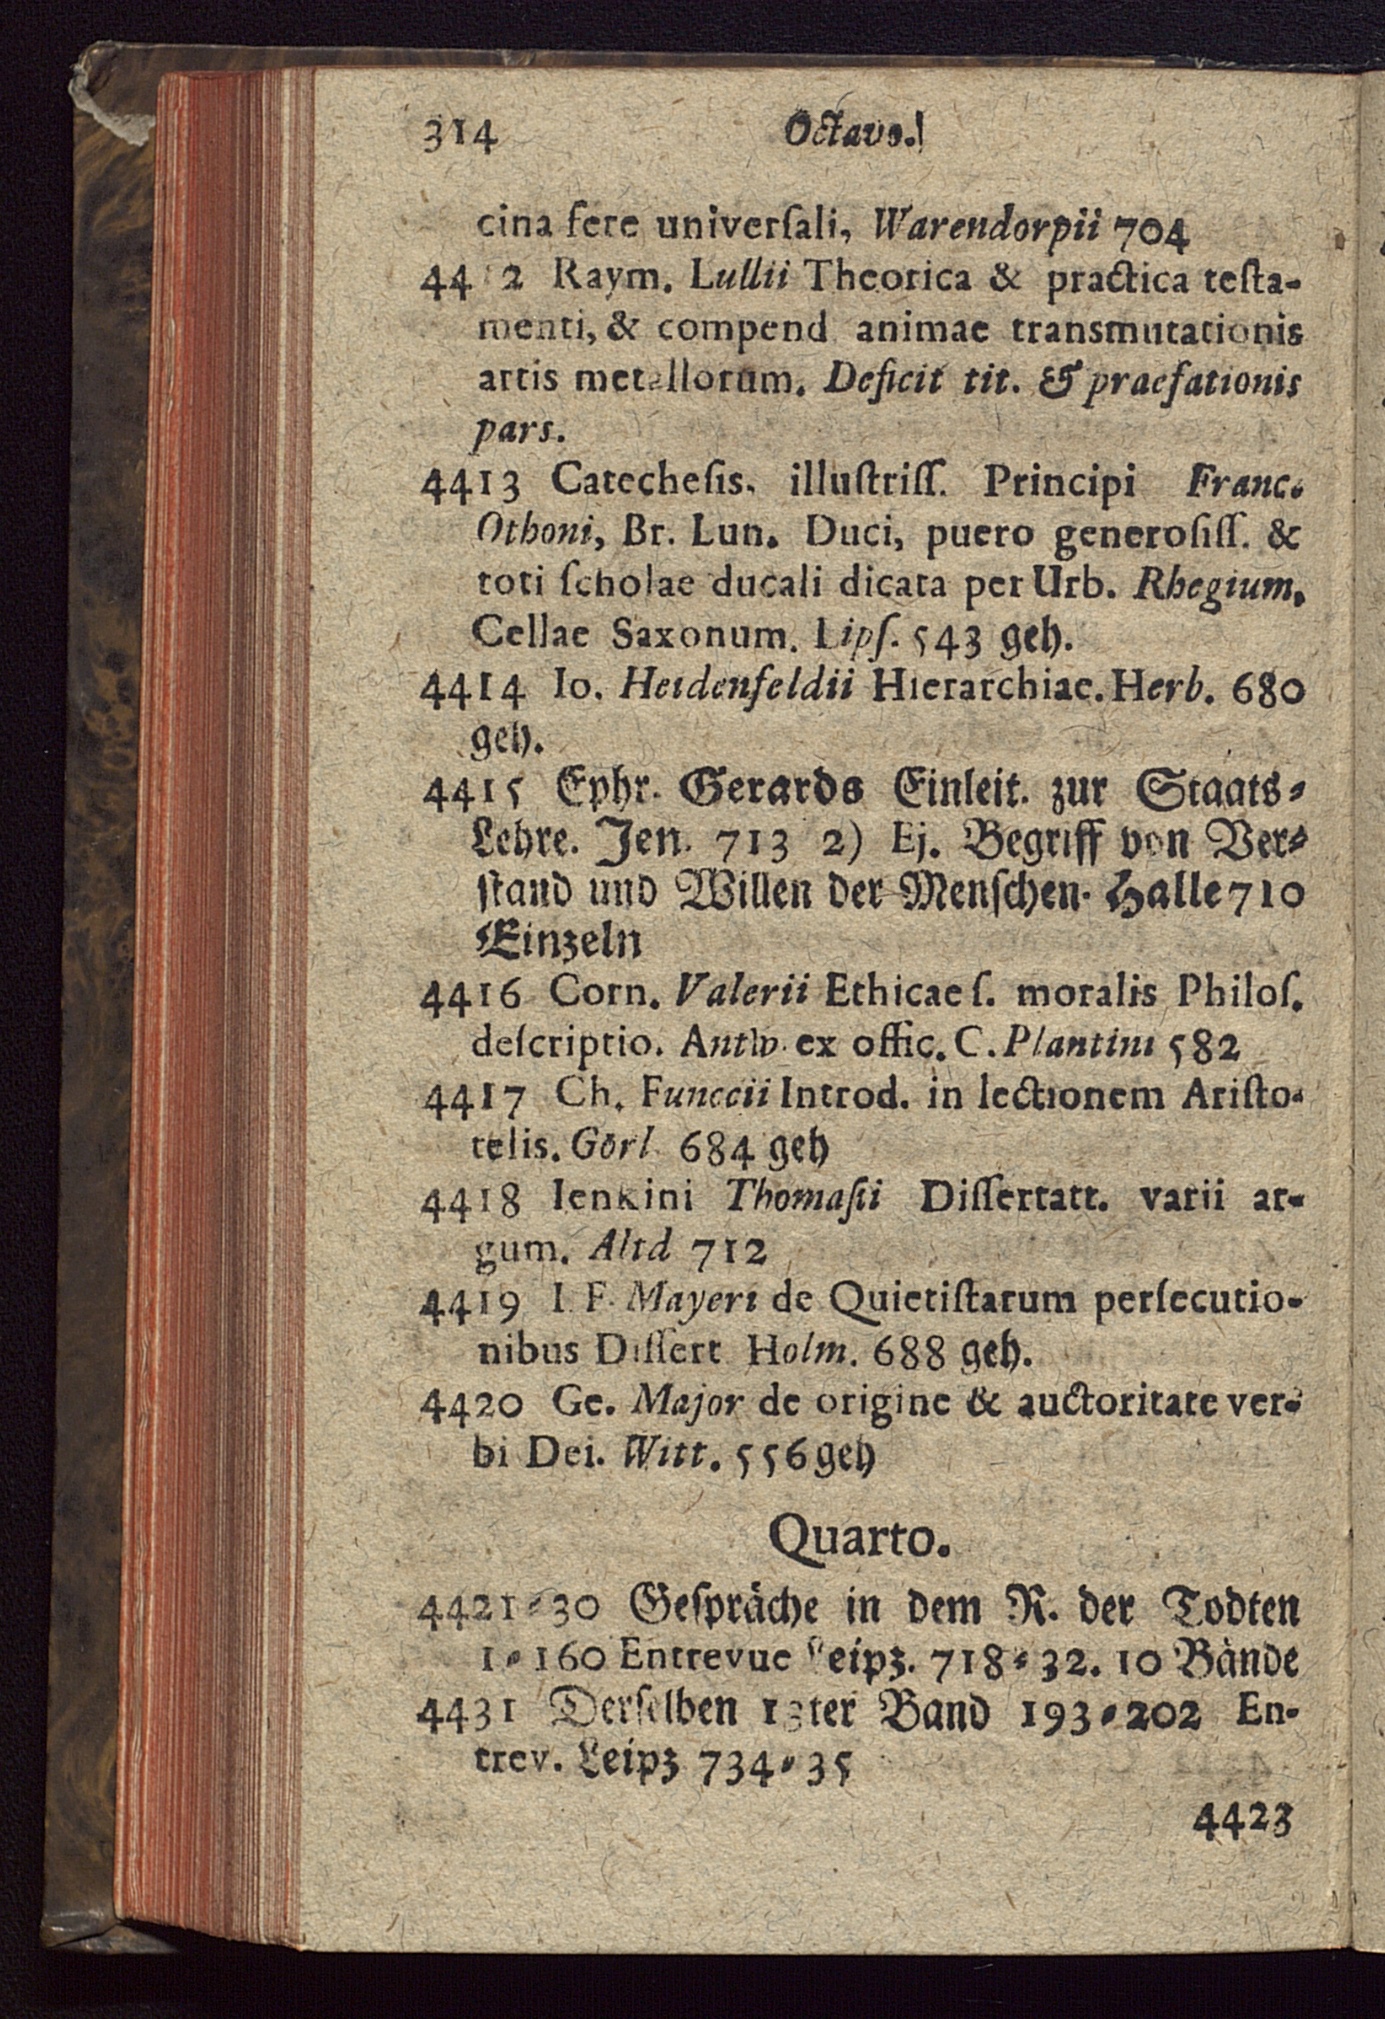 314 Octavo.
cina fere universali, Warendorpii 704
44 2 Raym. Lullii Theorica & practica testa-
menti, & compend animae transmutationis
artis metallorum. Deficit tit. & praefationis
pars.
4413 Catechesis, illustriss. Principi Franc.
Othoni, Br. Lun. Duci, puero generosiss. &
toti scholae ducali dicata per Urb. Rhegium.
Cellae Saxonum. Lips. 543 geh.
4414 Io. Heidenfeldii Hierarchiae. Herb. 680
geh.
4415 Ephr. Gerards Einleit. zur Staats-
Lehre. Jen. 713 2) Ej. Begriff von Ver-
stand und Willen der Menschen. Halle 710
Einzeln
4416 Corn. Valerii Ethicae s. moralis Philos.
descriptio. Antw. ex offic. C. Plantini 582
4417 Ch. Funccii Introd. in lectionem Aristo-
telis. Görl. 684 geh
4418 Ienkini Thomasii Dissertatt. varii ar-
gum. Altd 712
4419 I. F. Mayeri de Quietistarum persecutio-
nibus Dissert Holm. 688 geh.
4420 Ge. Major de origine & auctoritate ver-
bi Dei. Witt. 556 geh
Quarto.
4421-30 Gespräche in dem R. der Todten
1-160 Entrevue Leipz. 718-32. 10 Bände
4431 Derselben 13ter Band 193-202 En-
trev. Leipz 734-35
4423